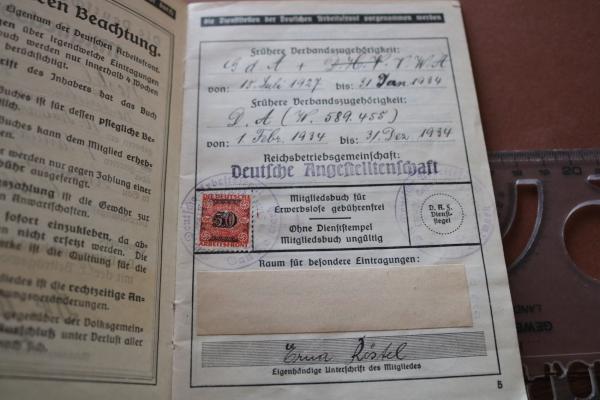 ren Beachtung.
Eigentum der Deutschen Arbeitsfront.
ngen über irgendwelche Eintragungen
buch werden nur innerhalb 4 Wochen
berücksichtigt.
rift des Inhabers hat das Buch
Buches ist für dessen pflegliche Be-
Buches kann dem Mitglied erheb-
er werden nur gegen Zahlung einer
ühr ausgefertigt.
zahlung ist die Gewähr zur
Anwartschaften.
sofort einzukleben, da ab-
en nicht ersetzt werden. Die
rke ist die Quittung für die
iedes ist die rechtzeitige An-
ungsveränderungen.
gegenüber der Volksgemein-
Ausschluß unter Verlust aller
die Dienststellen der Deutschen Arbeitsfront vorgenommen werden
Frühere Verbandszugehörigkeit:
G d A + D.H.V. V W A
von: 18. Juli 1927 bis: 31 Jan. 1934
Frühere Verbandszugehörigkeit:
D. A (W. 589.455)
von: 1. Febr. 1934 bis: 31. Dez. 1934
Reichsbetriebsgemeinschaft:
Deutsche Angestelltenschaft
DIE DEUTSCHE
50
ARBEITSFRONT
Mitgliedsbuch für
Erwerbslose gebührenfrei
Ohne Dienststempel
Mitgliedsbuch ungültig
D. A. F.
Dienst-
Siegel
Raum für besondere Eintragungen:
Erna Röstel
Eigenhändige Unterschrift des Mitgliedes
5
20
GEWE
LAN